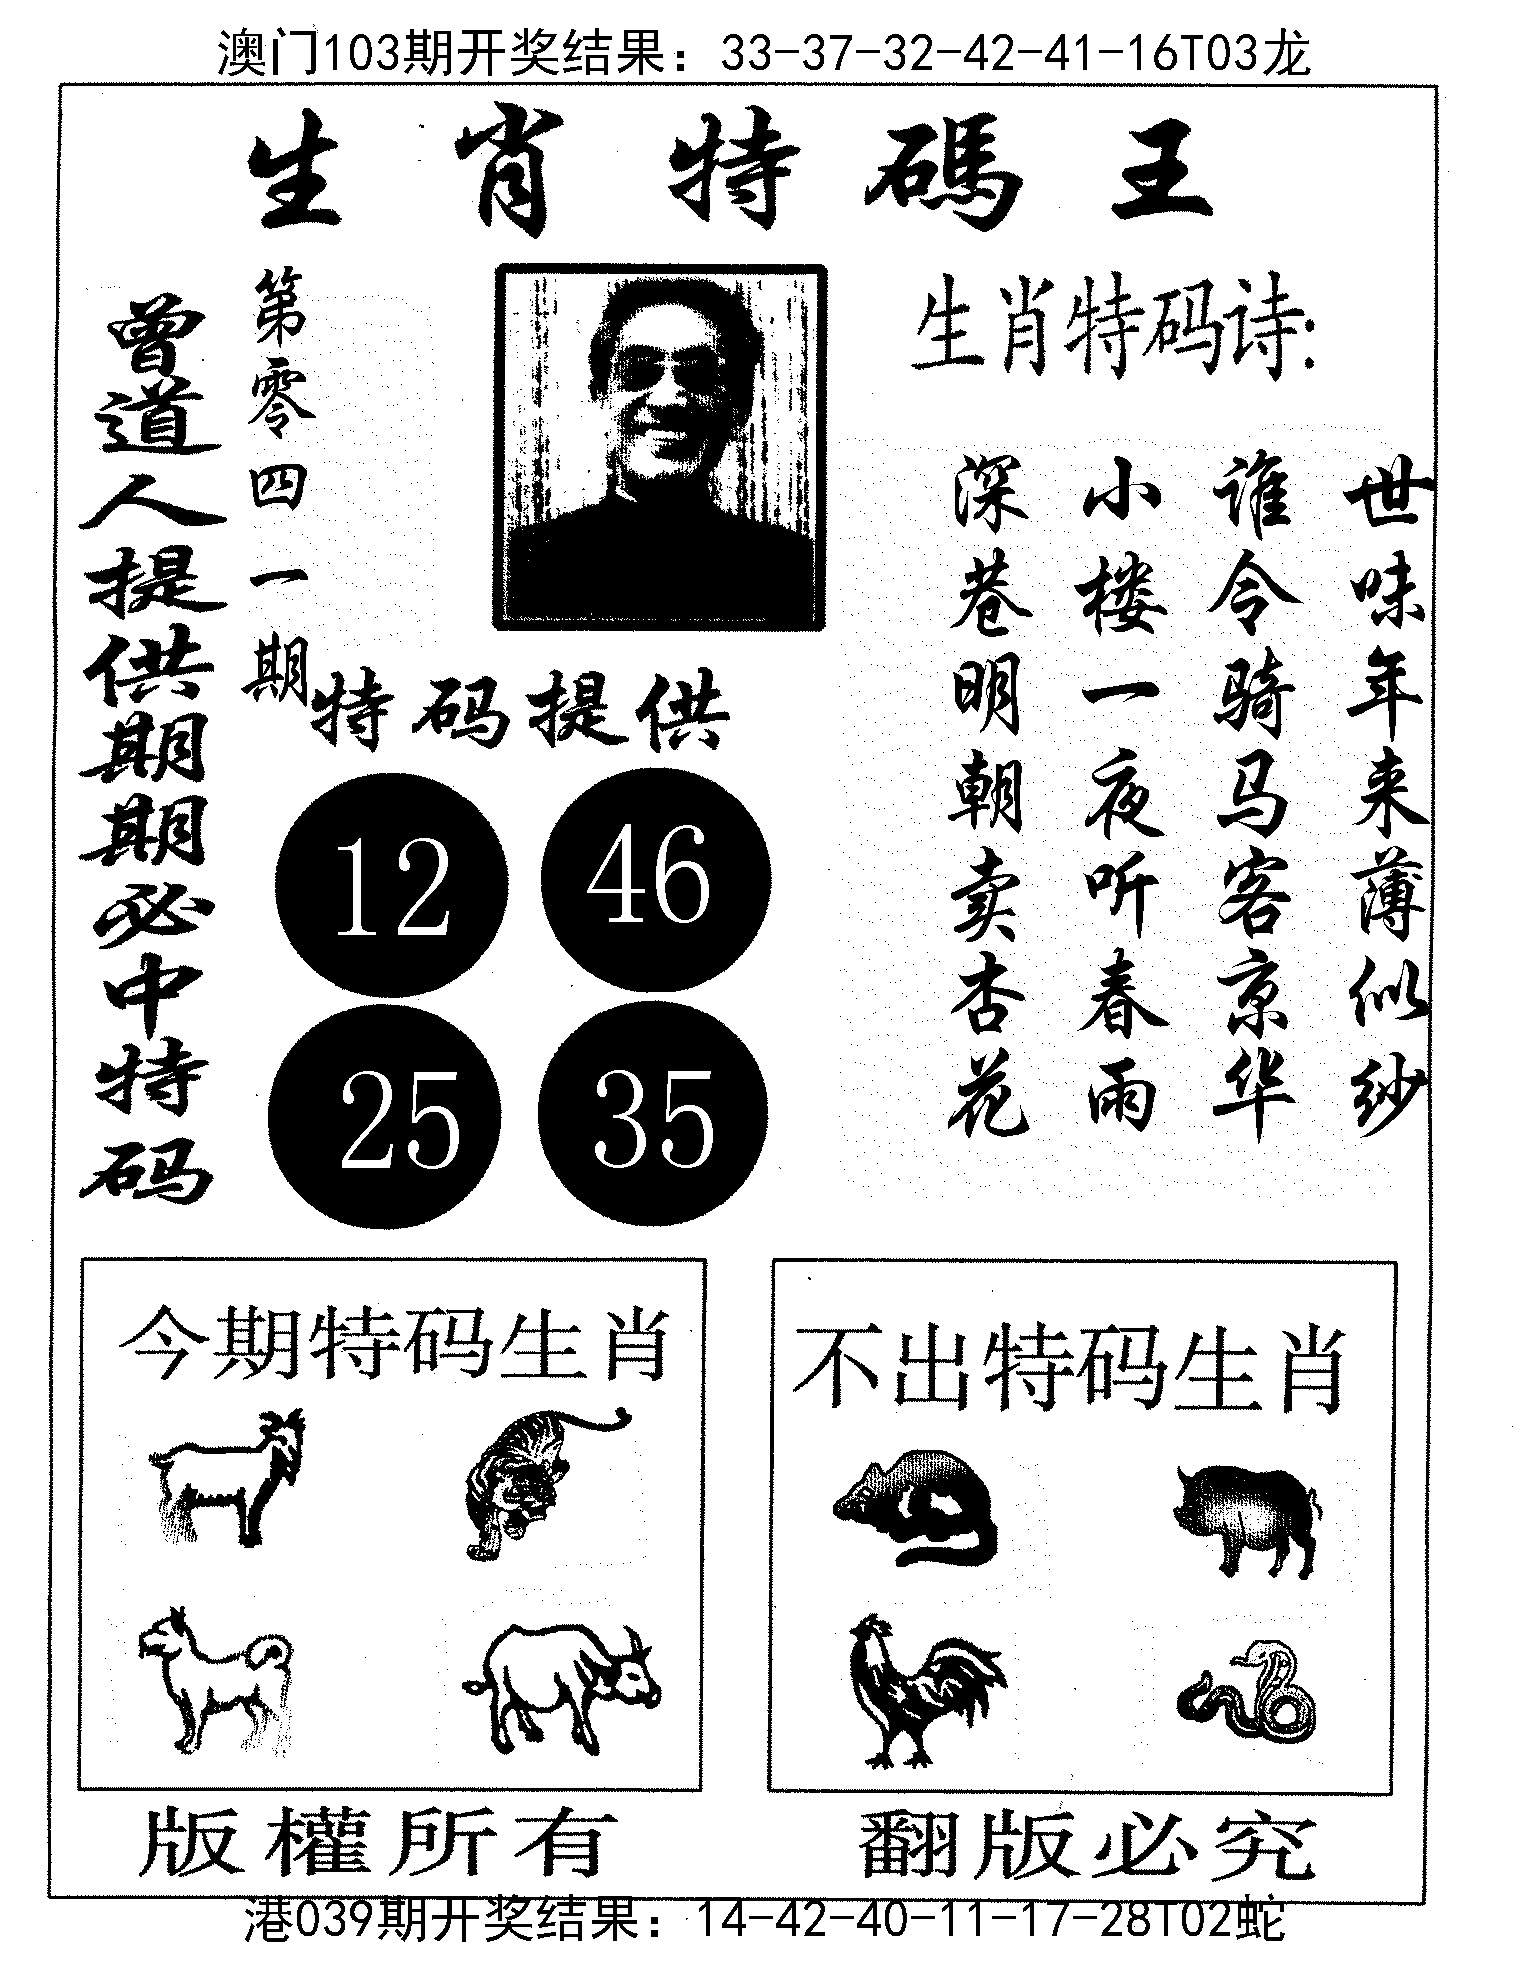 澳门103期开奖结果：33-37-32-42-41-16T03龙
生肖特碼王
曾道人提供期期必中特码
第零四一期
生肖特码诗:
世味年来薄似纱
谁令骑马客京华
小楼一夜听春雨
深巷明朝卖杏花
特码提供
12 46
25 35
今期特码生肖
不出特码生肖
版權所有
翻版必究
港039期开奖结果：14-42-40-11-17-28T02蛇